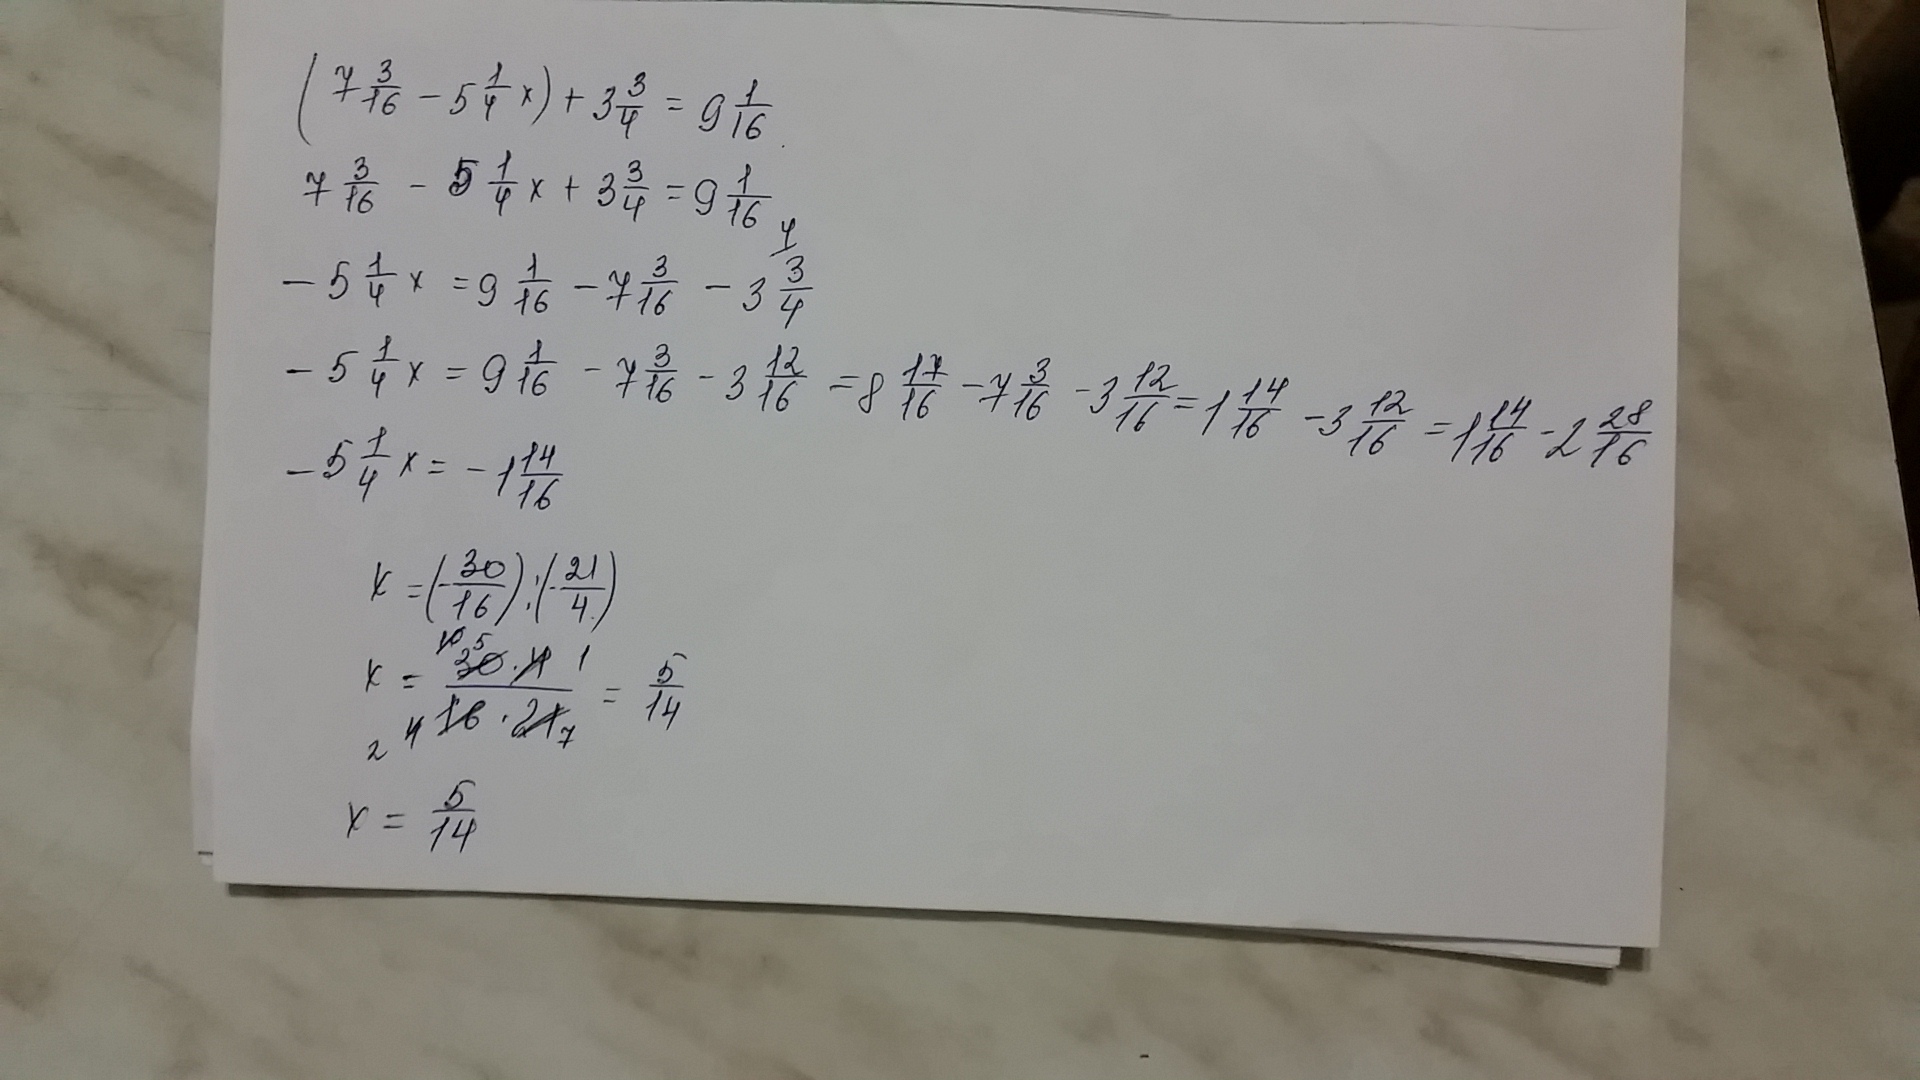 (7 3/16 - 5 1/4 x) + 3 3/4 = 9 1/16
7 3/16 - 5 1/4 x + 3 3/4 = 9 1/16
- 5 1/4 x = 9 1/16 - 7 3/16 - 3 3/4 4
- 5 1/4 x = 9 1/16 - 7 3/16 - 3 12/16 = 8 17/16 - 7 3/16 - 3 12/16 = 1 14/16 - 3 12/16 = 1 14/16 - 2 28/16
- 5 1/4 x = - 1 14/16
x = (-30/16) : (-21/4)
x = 10 5 30 · 4 1 / 2 4 16 · 21 7 = 5/14
x = 5/14